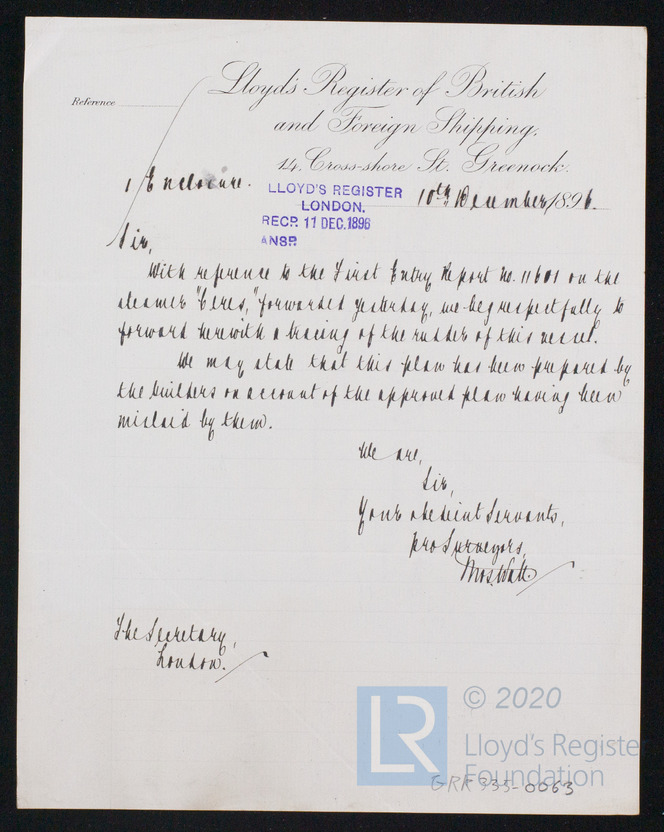 Lloyd's Register of British
and Foreign Shipping.
Reference
14, Cross-shore St. Greenock.
1 Enclosure.
10th December, 1896.
LLOYD'S REGISTER
LONDON.
RECD. 11 DEC. 1896
ANSD.
Sir,
With reference to the First Entry Report No. 11601 on the
steamer "Ceres," forwarded yesterday, we beg respectfully to
forward herewith a tracing of the rudder of this vessel.
We may state that this plan has been prepared by
the builders on account of the approved plan having been
mislaid by them.
We are,
Sir,
Your obedient Servants,
pro Surveyors,
Thos. Watt
The Secretary,
London.
LR
© 2020
Lloyd's Register
Foundation
GRK 335-0063